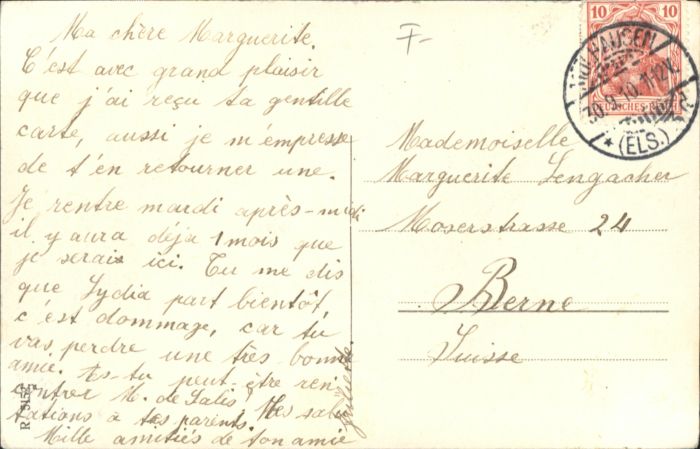 Ma chère Marguerite.
C'est avec grand plaisir
que j'ai reçu ta gentille
carte, aussi je m'empresse
de t'en retourner une.
Je rentre mardi après-midi
il y aura déja 1 mois que
je serais ici. Tu me dis
que Lydia part bientôt,
c'est dommage, car tu
vas perdre une très bonne
amie. As-tu peut-être ren-
contrer M. de Salis?
Mes salu-
tations à tes parents.
Mille amitiés de ton amie
F-
10 10
MÜLHAUSEN
30.9.10.11-12V.
* (ELS.)
DEUTSCHES REICH
Mademoiselle
Marguerite Lengacher
Moserstrasse 24
Berne
Suisse